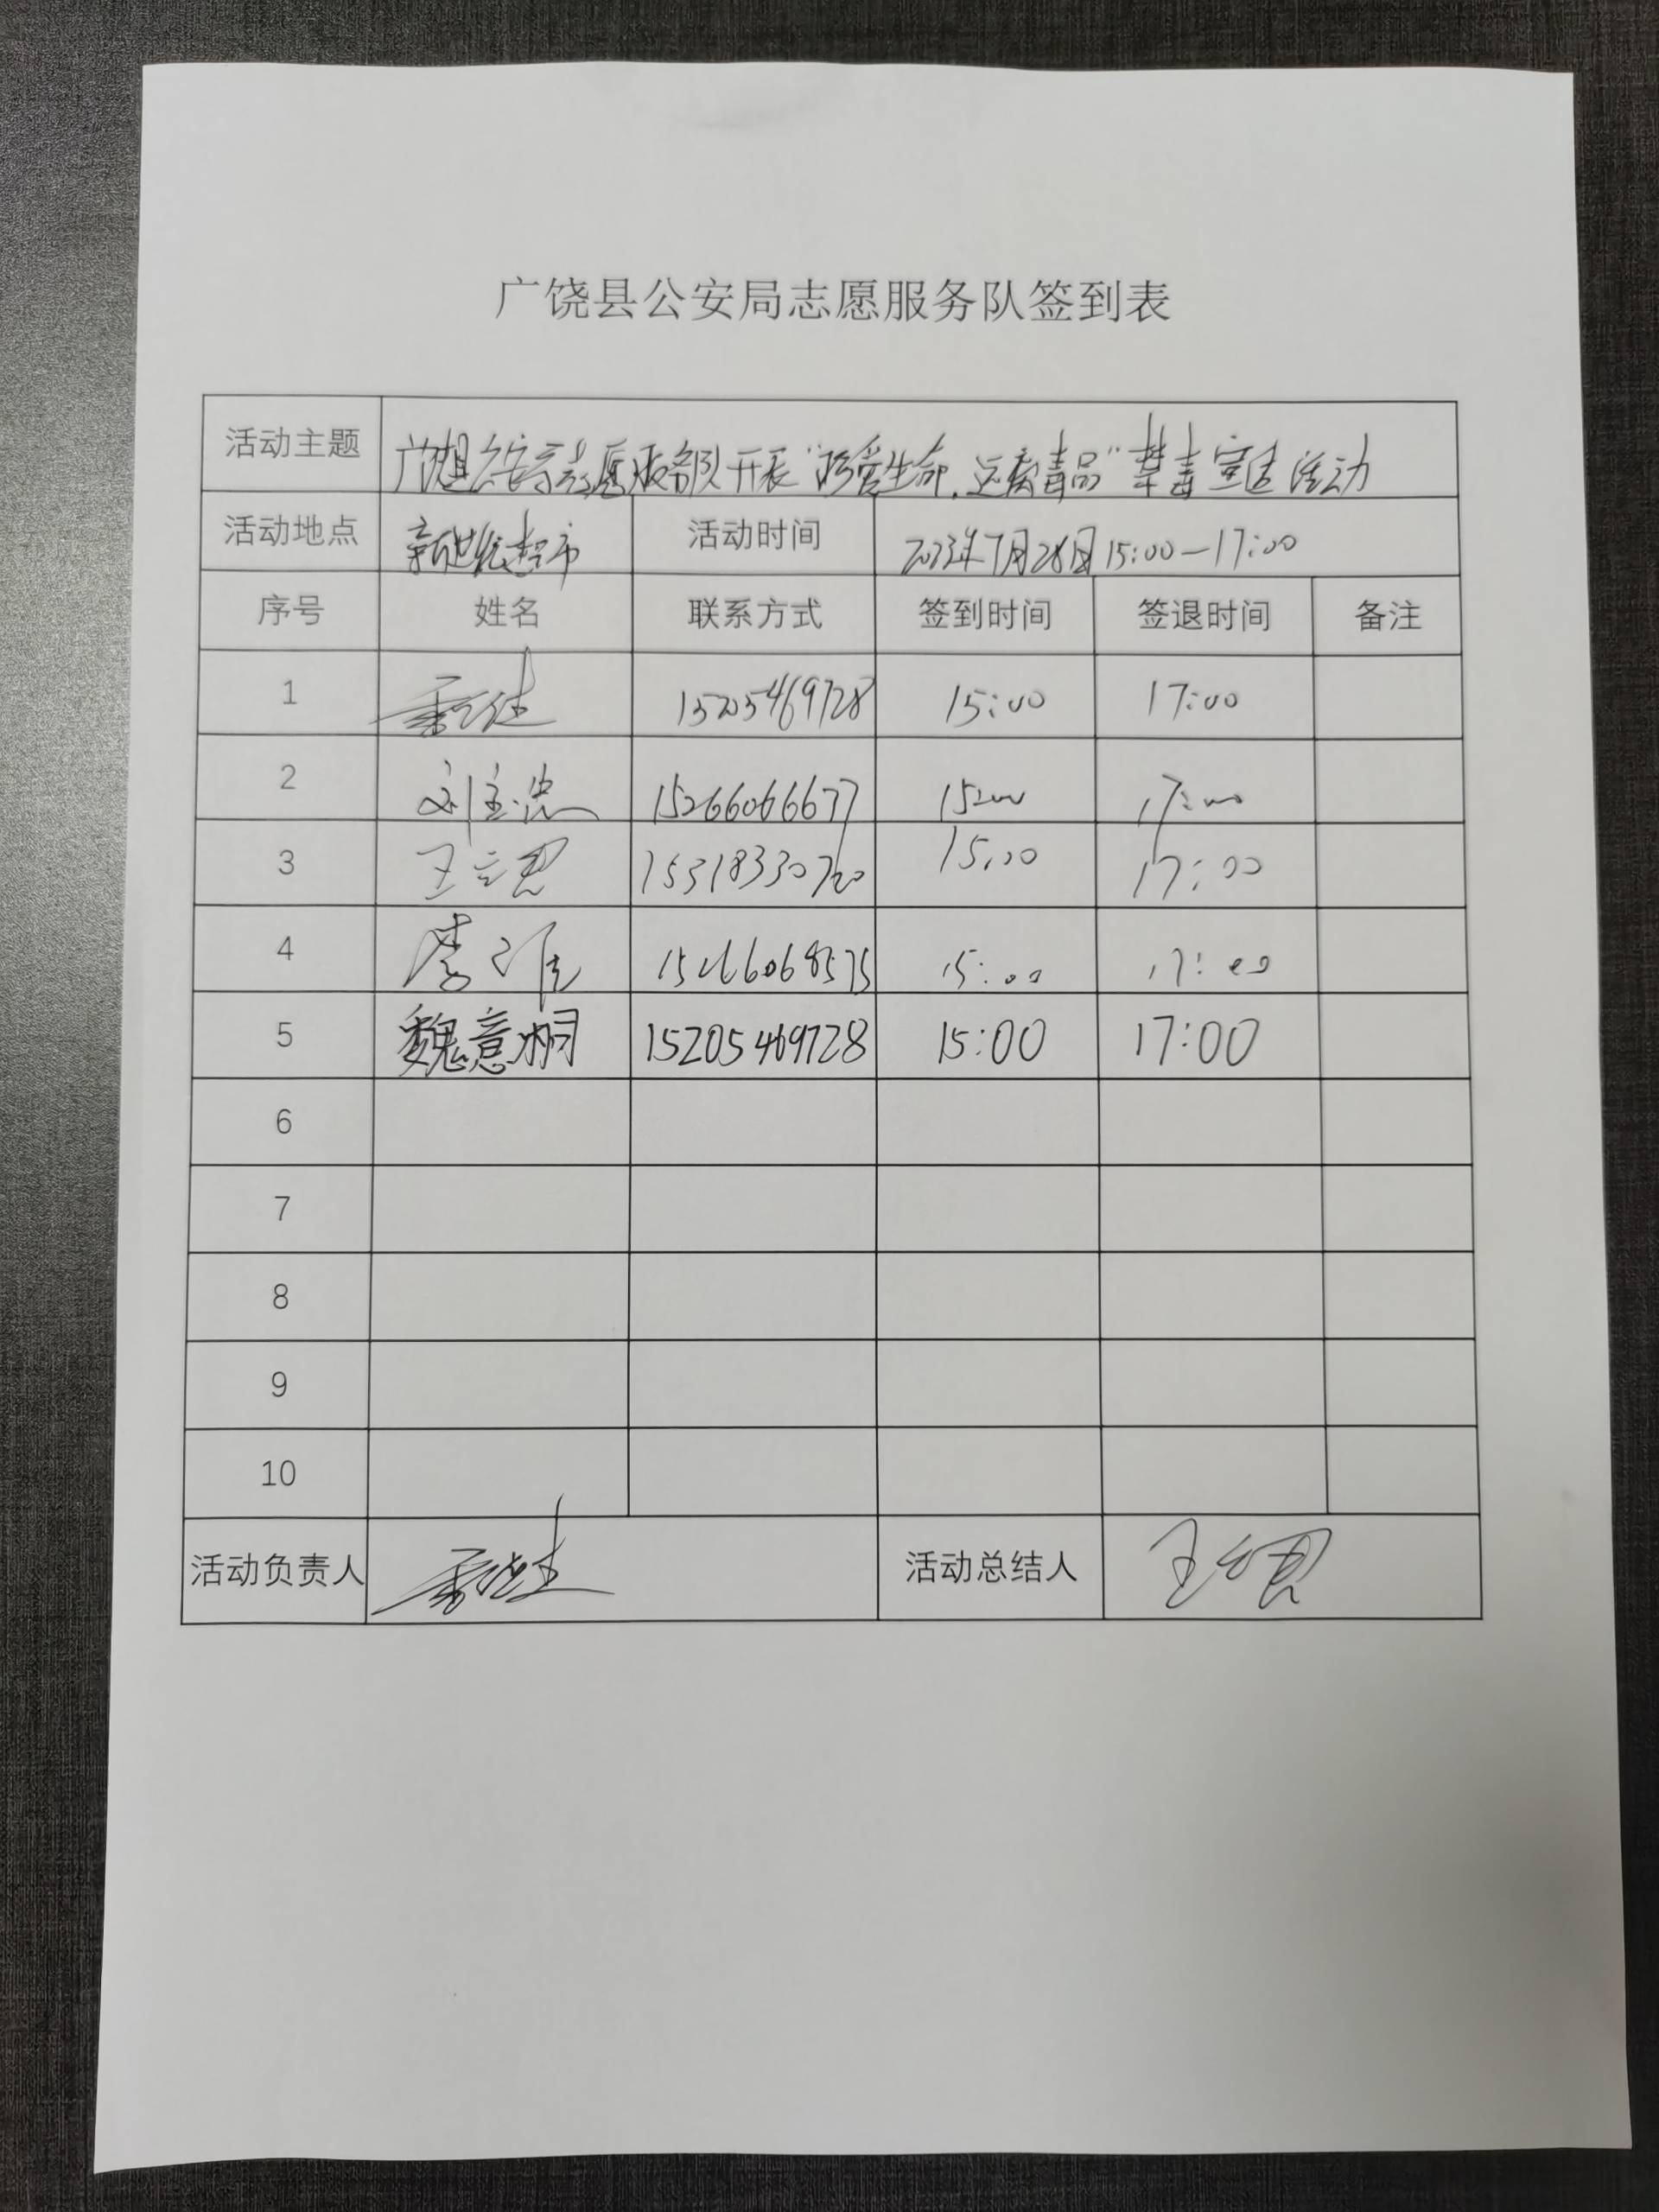 广饶县公安局志愿服务队签到表
活动主题 广饶县公安局志愿服务队开展“珍爱生命，远离毒品”禁毒宣传活动
活动地点 新世纪超市 活动时间 2023年7月28日15:00—17:00
序号 姓名 联系方式 签到时间 签退时间 备注
1 15205469728 15:00 17:00
2 15266066677 15:00 17:00
3 15318330720 15:00 17:00
4 15266068575 15:00 17:00
5 魏意桐 15205469728 15:00 17:00
6
7
8
9
10
活动负责人 活动总结人